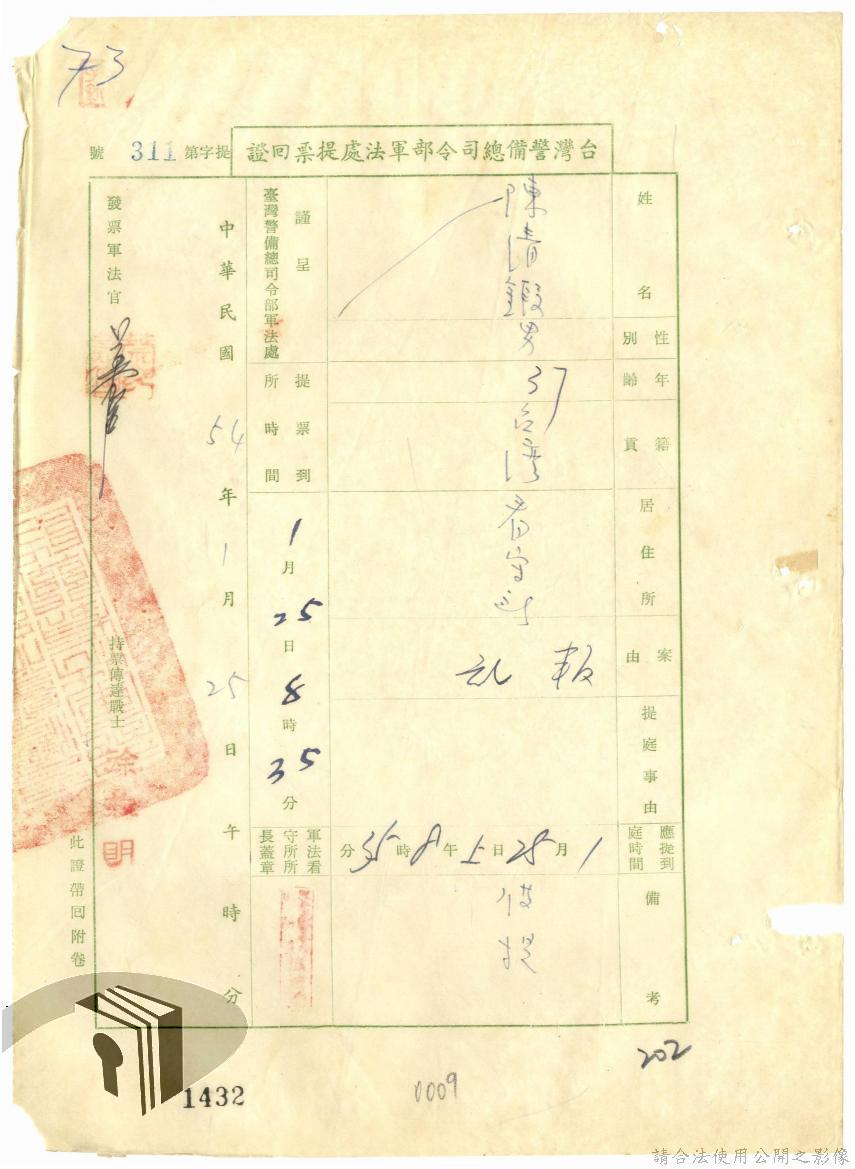 73
台灣警備總司令部軍法處提票回證
提字第 311 號
姓名
陳清
性別
男
年齡
37
籍貫
台灣
居住所
看守所
案由
叛乱
提庭事由
應提到庭時間
1月25日上午8時35分
備考
借提
謹呈
臺灣警備總司令部軍法處
提票到所時間
1月25日8時35分
軍法看守所所長蓋章
中華民國54年1月25日午時分
發票軍法官
持票傳達戰士
徐明
此證帶回附卷
202
1432
0009
請合法使用公開之影像